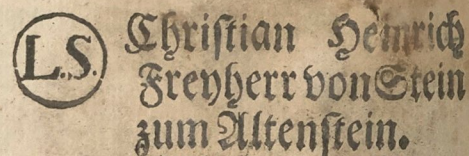 L.S. Christian Heinrich
Freyherr von Stein
zum Altenstein.